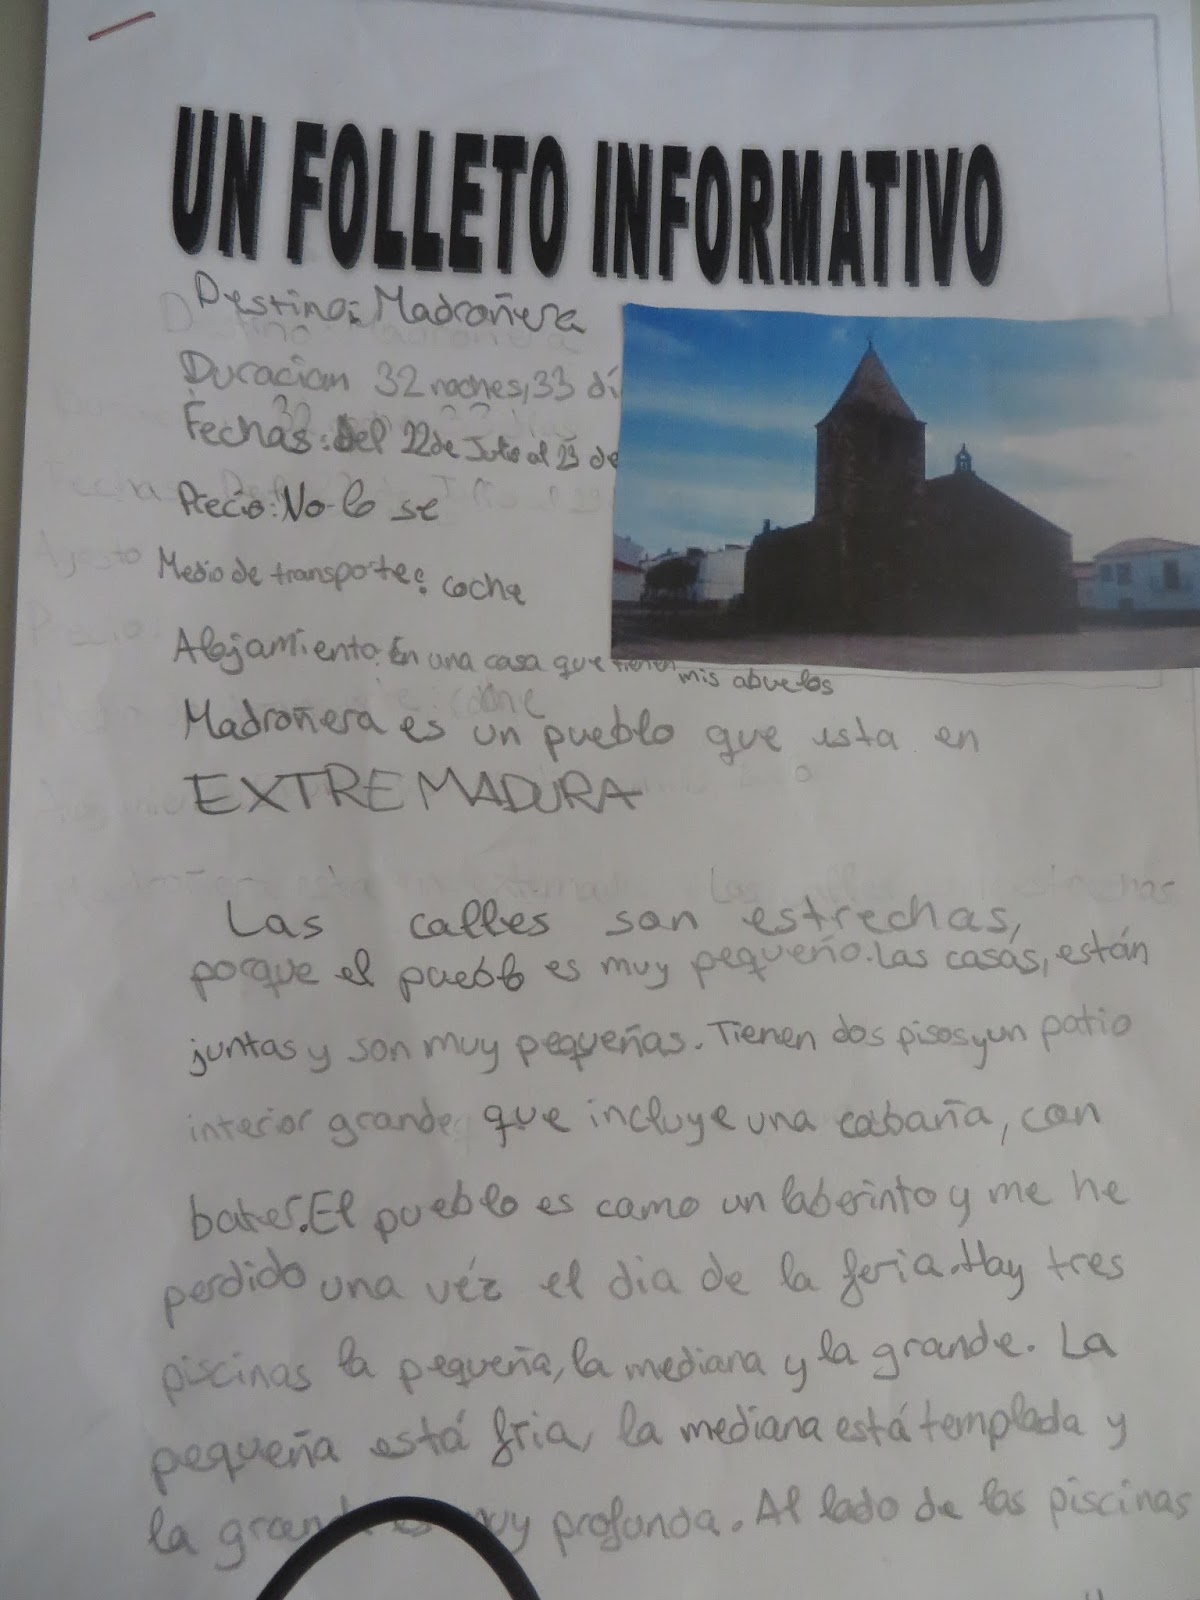 UN FOLLETO INFORMATIVO
Destino: Madroñera
Duracion 32 noches, 33 dí
Fechas: del 22 de Julio al 23 de
Precio: No lo se
Medio de transporte: coche
Alojamiento: En una casa que tienen mis abuelos
Madroñera es un pueblo que esta en
EXTREMADURA
Las calles son estrechas,
porque el pueblo es muy pequeño. Las casas, están
juntas y son muy pequeñas. Tienen dos pisos y un patio
interior grande que incluye una cabaña, con
bater. El pueblo es como un laberinto y me he
perdido una véz el dia de la feria. Hay tres
piscinas la pequeña, la mediana y la grande. La
pequeña está fria, la mediana está templada y
la grande es muy profunda. Al lado de las piscinas